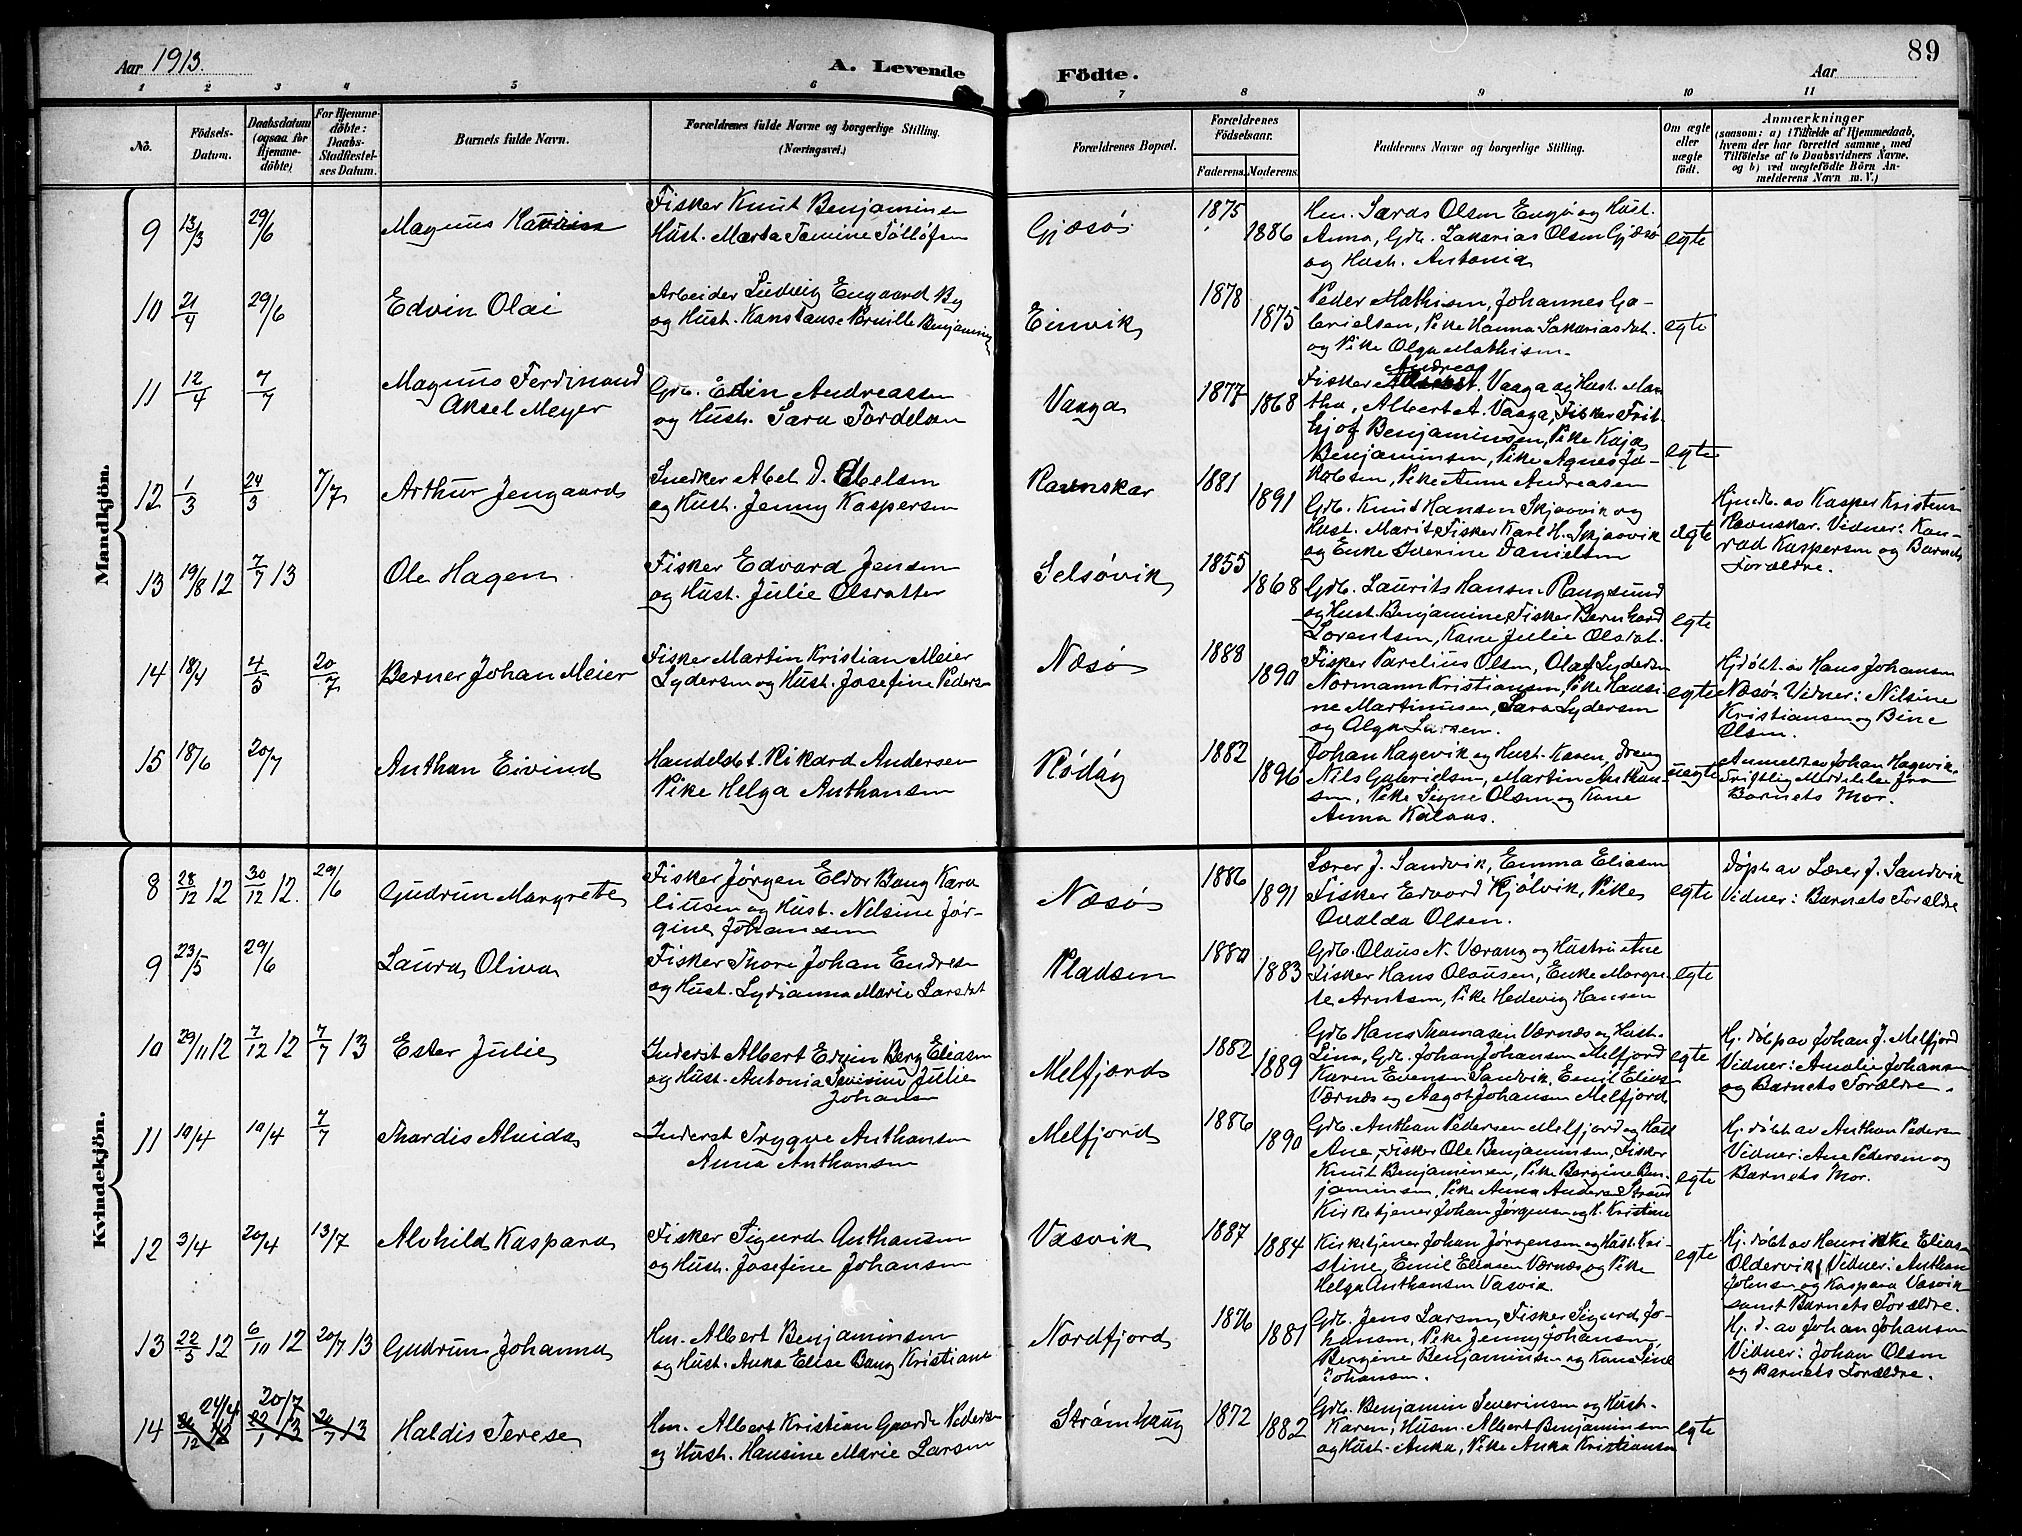 Aar 1913.
A. Levende Födte.
Aar
89
1 2 3 4 5 6 7 8 9 10 11
No.
Födsels-Datum.
Daabsdatum (ogsaa for Hjemme-döbte)
For Hjemme-döbte: Daabs-Stadfæstel-ses Datum.
Barnets fulde Navn.
Forældrenes fulde Navne og borgerlige Stilling.
(Næringsvei.)
Forældrenes Bopæl.
Forældrenes Födselsaar.
Faderens. Moderens.
Faddernes Navne og borgerlige Stilling.
Om ægte eller uægte födt.
Anmærkninger
(saasom: a) i Tilfælde af Hjemmedaab,
hvem der har forrettet samme, med
Tilföielse af to Daabsvidners Navne,
og b) ved uægtefödte Börn An-
melderens Navn m. V.)
Mandkjön.
9 13/3 29/6 Magnus
Fisker Knut Benjaminsen
Hust. Marta Tomine Tolløfsen
Gjæsø 1875 1886
Hm. Olsen Engø og Hust.
Anna, Grb. Sakarias Olsen Gjæsø
og Hust. Antonia
egte
10 21/4 29/6 Edvin Olai
Arbeider Ludvig Engaard By
og Hust. Konstanse Pernille Benjamins
Einvik 1878 1875
Peder Mathisen, Johannes Ga-
brielsen, Pike Hanna Sakariasdat.
og Pike Olga Mathisen.
egte
11 12/4 7/7 Magnus Ferdinand
Aksel Meyer
Grb. Edin Andreassen
og Hust. Sara Tordelsen
Vaaga 1877 1868
Andreas
Fisker A. Vaaga og Hust. Mar-
tha, Albert A. Vaaga, Fisker Frit-
hjof Benjaminsen, Pike Kaja
Benjaminsen, Pike Agnes Ja-
kobsen, Pike Anna Andreasen
egte
12 1/3 24/3 7/7 Arthur Jengaard
Snedker Abel D. Abelsen
og Hust. Jenny Kaspersen
Ravnskar 1881 1891
Grb. Knut Hansen Skjavik og
Hust. Marit, Fisker Karl H. Skjavik
og Enke Severine Danielsen
egte
Hjmdb. av Kasper Kristens
Ravnskar. Vidner: Kon-
rad Kaspersen og Barnets
Forældre.
13 19/8 12 7/7 13 Ole Hagen
Fisker Edvard Jensen
og Hust. Julie Olsdatter
Selsøvik 1855 1868
Grb. Laurits Hansen Rangsund
og Hust. Benjamine, Fisker Bernhard
Lorentsen, Kone Julie Olsdat.
egte
14 18/4 4/5 20/7 Berner Johan Meier
Fisker Martin Kristian Meier
Lydersen og Hust. Josefine Peders
Næsø 1888 1890
Fisker Parelius Olsen, Olaf Lydersen
Normann Kristiansen, Pike Hansi-
ne Martinusen, Sara Lydersen
og Olga Larsen.
egte
Hjdøbt. av Hans Johansen
Næsø. Vidner: Nilsine
Kristiansen og Bine
Olsen.
15 18/6 20/7 Anthan Eivind
Handelsbt. Rikard Andersen
Pike Helga Anthonsen
Rødøy 1882 1896
Johan Hagevik og Hust. Karen, dreng
Nils Gabrielsen, Martin Anthon-
sen, Pike Signe Olsen og Kone
Anna Kalaas.
uegte
Anmeldt av Johan Hagevik.
Skriftlig Meddelelse fra
Barnets Mor.
Kvindekjön.
8 28/12 12 30/12 12. 29/6 Gudrun Margrete
Fisker Jørgen Eldor Bang Karo
liusen og Hust. Nilsine Jør-
gine Johansen
Næsø 1886 1891
Lærer J. Sandvik, Emma Eliasen
Fisker Edvard Kjølvik, Pike
Ovalda Olsen.
egte
Døpt av Lærer J. Sandvik
Vidner: Barnets Forældre
9 23/5 29/6 Laura Oliva
Fisker Thore Johan Endresen
og Hust. Lydianna Marie Larsdat
Pladsen 1880 1883
Grb. Olaus N. Værang og Hustru Ane
Fisker Hans Olausen, Enke Margre-
te Arntsen, Pike Hedevig Hansen
egte
10 29/11 12 7/12 12 7/7 13 Ester Julie
Inderst Albert Edvin Berg Eliasen
og Hust. Antonia Severine Julie
Johansen
Melfjord 1882 1889
Grb. Hans Thomasen Værnes og Hust.
Lina, Grb. Johan Johansen Melfjord
Karen Evensen Sandvik, Emil Elias-
Værnes og Aagot Johansen Melfjord
egte
Hj. døbt av Johan J. Melfjord
Vidner: Amalie Johansen
og Barnets Forældre.
11 10/4 10/4 7/7 Thordis Alvida
Inderst Trygve Anthonsen
Anna Anthonsen
Melfjord 1886 1890
Grb. Anthon Pedersen Melfjord og Hust
Ane, Fisker Ole Benjaminsen, Fisker
Knut Benjaminsen, Pike Bergine Ben-
jaminsen, Pike Anna Anders Strand
Kirketjener Johan Jørgensen og H. Kristine
egte
Hj. døbt av Anthon Pedersen
Vidner: Ane Pedersen og
Barnets Mor.
12 3/4 20/4 13/7 Alvhild Kaspara
Fisker Sigurd Anthonsen
og Hust. Josefine Johansen
Vasvik 1887 1884
Kirketjener Johan Jørgensen og Hust. Kri-
stine, Emil Eliasen Værnes og Pike
Helga Anthonsen Vasvik
egte
Hj. døbt av Henrikke Eliasen
Oldervik, Vidner: Anthon
Johnsen og Kaspara Vasvik
samt Barnets Forældre.
13 22/5 12 6/10 12 20/7 13 Gudrun Johanna
Hm. Albert Benjaminsen
og Hust. Anna Elise Bang Kristians
Nordfjord 1876 1881
Grb. Jens Larsen, Fisker Sigurd Jo-
hansen, Pike Jenny Johansen,
Bergine Benjaminsen og Kona Line
Johansen.
Hj. d. av Johan Johansen
Vidner: Johan Olsen
og Barnets Forældre.
14 24/4 20/7 Haldis Terese
Hm. Albert Kristian Gaarde Pedersen
og Hust. Hansine Marie Larsen
Strømhaug 1872 1882
Grb. Benjamin Severinsen og Hust.
Karen, Husm. Albert Benjaminsen
og Hust. Anna, Pike Anna Kristiansen
egte